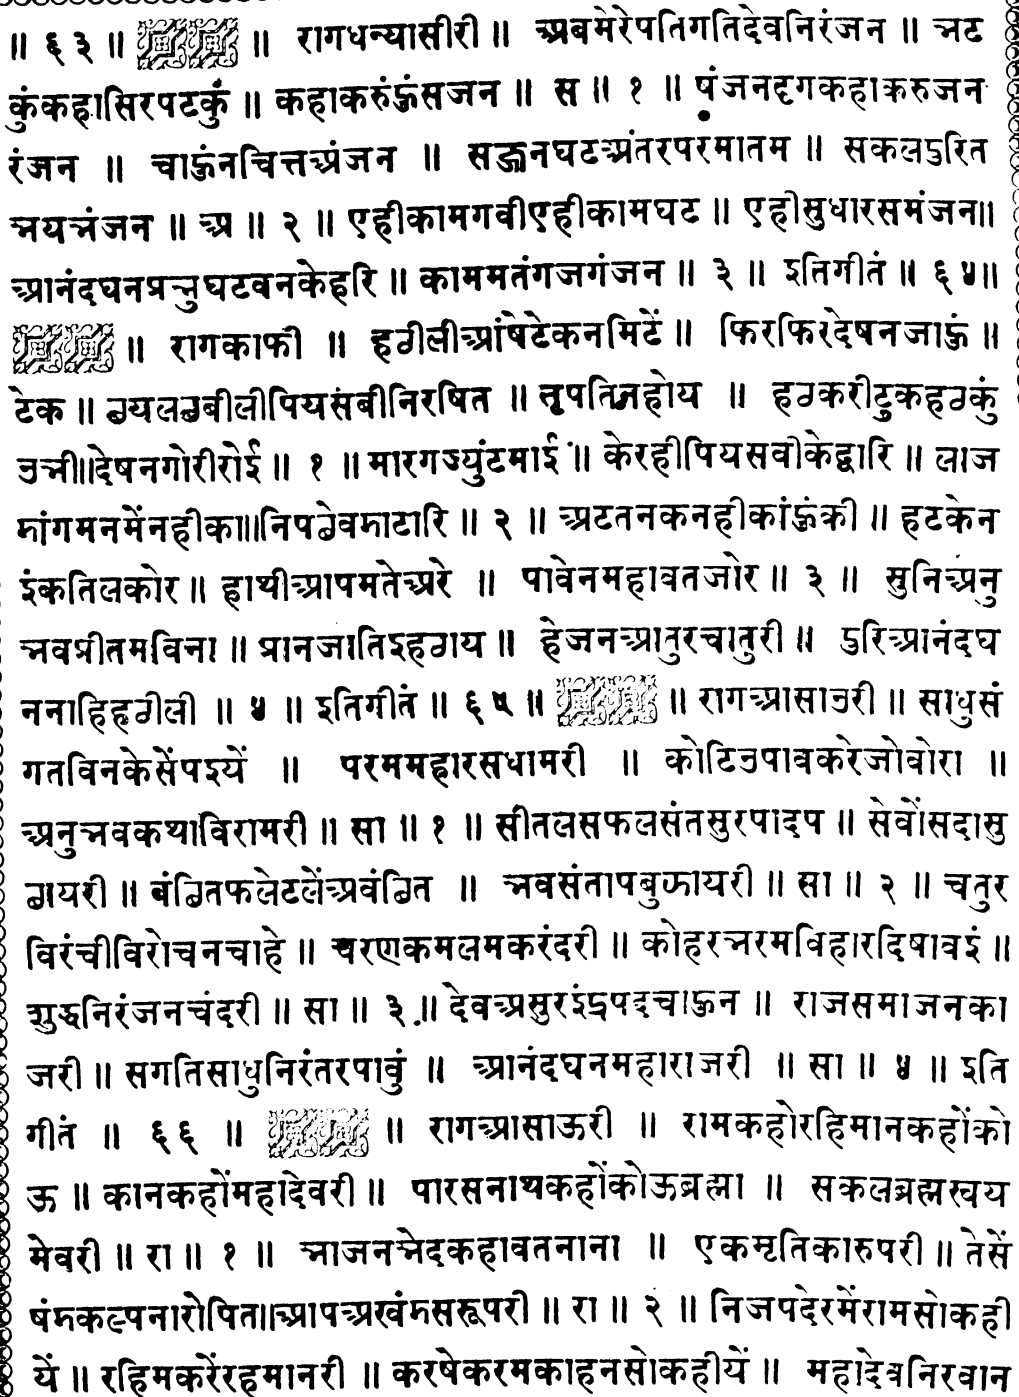 ॥ ६३ ॥ ॥ रागधन्यासीरी ॥ अबमेरेपतिगतिदेवनिरंजन ॥ भट
कुंकहासिरपटकुं ॥ कहाकरुंऊंसजन ॥ स ॥ १ ॥ षंजनदृगकहाकरुजन
रंजन ॥ चाऊंनचित्तअंजन ॥ सज्जनघटअंतरपरमातम ॥ सकलदुरित
भयभंजन ॥ अ ॥ २ ॥ एहीकामगवीएहीकामघट ॥ एहीसुधारसमंजन॥
आनंदघनप्रभुघटवनकेहरि ॥ काममतंगजगंजन ॥ ३ ॥ इतिगीतं ॥ ६४॥
॥ रागकाफी ॥ हठीलीआंषेटेकनमिटें ॥ फिरफिरदेषनजाऊं ॥
टेक ॥ छयलछबीलीपियसंबीनिरषित ॥ तृपतिनहोय ॥ हठकरीटुकहठकुं
उभी॥देषनगोरीरोई ॥ १ ॥ मारगज्युंटमाई ॥ केरहीपियसवीकेद्वारि ॥ लाज
डांगमनमेंनहीका॥निपछेवडाटारि ॥ २ ॥ अटतनकनहीकांऊंकी ॥ हटकेन
इंकतिलकोर ॥ हाथीआपमतेअरे ॥ पावेनमहावतजोर ॥ ३ ॥ सुनिअनु
भवप्रीतमविना ॥ प्रानजातिइहठाय ॥ हेजनआतुरचातुरी ॥ दुरिआनंदघ
ननाहिहठीली ॥ ४ ॥ इतिगीतं ॥ ६५ ॥ ॥ रागआसाउरी ॥ साधुसं
गतविनकेसेंपइयें ॥ परममहारसधामरी ॥ कोटिउपावकरेजोवोरा ॥
अनुभवकथाविरामरी ॥ सा ॥ १ ॥ सीतलसफलसंतसुरपादप ॥ सेवोंसदासु
छायरी ॥ बंछितफलेटलेंअवंछित ॥ भवसंतापबुझायरी ॥ सा ॥ २ ॥ चतुर
विरंचीविरोचनचाहे ॥ चरणकमलमकरंदरी ॥ कोहरभरमविहारदिषावइं ॥
शुद्धनिरंजनचंदरी ॥ सा ॥ ३ ॥ देवअसुरइंद्रपदचाऊन ॥ राजसमाजनका
जरी ॥ सगतिसाधुनिरंतरपावुं ॥ आनंदघनमहाराजरी ॥ सा ॥ ४ ॥ इति
गीतं ॥ ६६ ॥ ॥ रागआसाऊरी ॥ रामकहोरहिमानकहोंको
ऊ ॥ कानकहोंमहादेवरी ॥ पारसनाथकहोंकोऊब्रह्मा ॥ सकलब्रह्मस्वय
मेवरी ॥ रा ॥ १ ॥ भाजनभेदकहावतनाना ॥ एकमृतिकारुपरी ॥ तेसें
षंडकल्पनारोपित॥आपअखंडसरूपरी ॥ रा ॥ २ ॥ निजपदेरमेंरामसोकही
यें ॥ रहिमकरेंरहमानरी ॥ करषेकरमकाहनसोकहीयें ॥ महादेवनिरवान